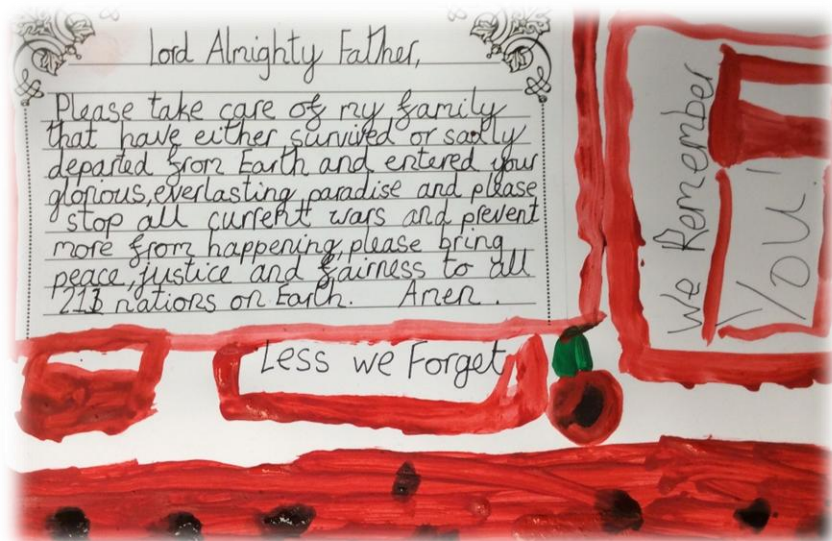 Lord Almighty Father,
Please take care of my family
that have either survived or sadly
departed from Earth and entered your
glorious, everlasting paradise and please
stop all current wars and prevent
more from happening, please bring
peace, justice and fairness to all
213 nations on Earth. Amen.
Less we Forget
We Remember
You!